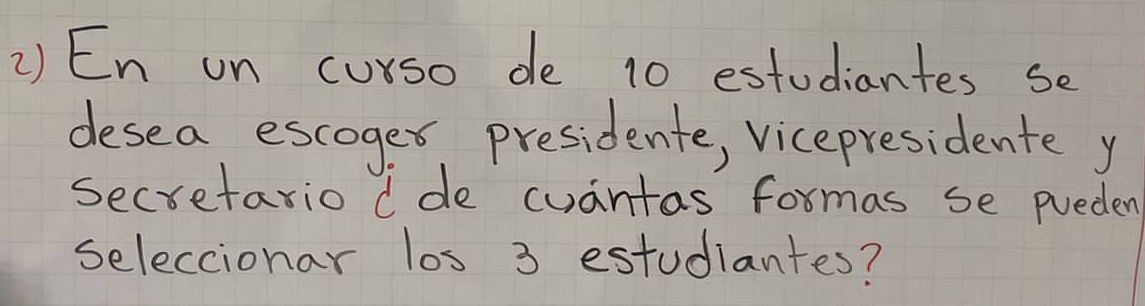 2) En un curso de 10 estudiantes se
desea escoger presidente, vicepresidente y
secretario ¿ de cuántas formas se pueden
seleccionar los 3 estudiantes?